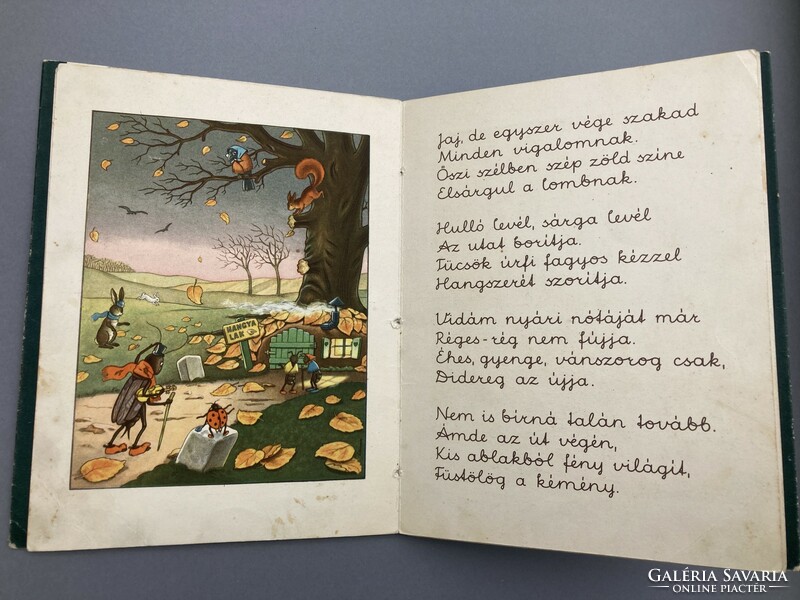 HANGYA
LAK
Jaj, de egyszer vége szakad
Minden vigalomnak.
Őszi szélben szép zöld színe
Elsárgul a lombnak.
Hulló levél, sárga levél
Az utat borítja.
Tücsök úrfi fagyos kézzel
Hangszerét szorítja.
Vidám nyári nótáját már
Réges-rég nem fújja.
Éhes, gyenge, vánszorog csak,
Didereg az újja.
Nem is bírná talán tovább.
Ámde az út végén,
Kis ablakból fény világít,
Füstölög a kémény.
GALÉRIA SAVARIA
ONLINE PIACTÉR